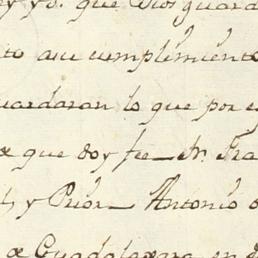 y yo. que Dios guard
to a su cumplimiento
uardaran lo que por e
que doy fee = Fr. Fra
y Prior = Antonio
de Guadalaxara en